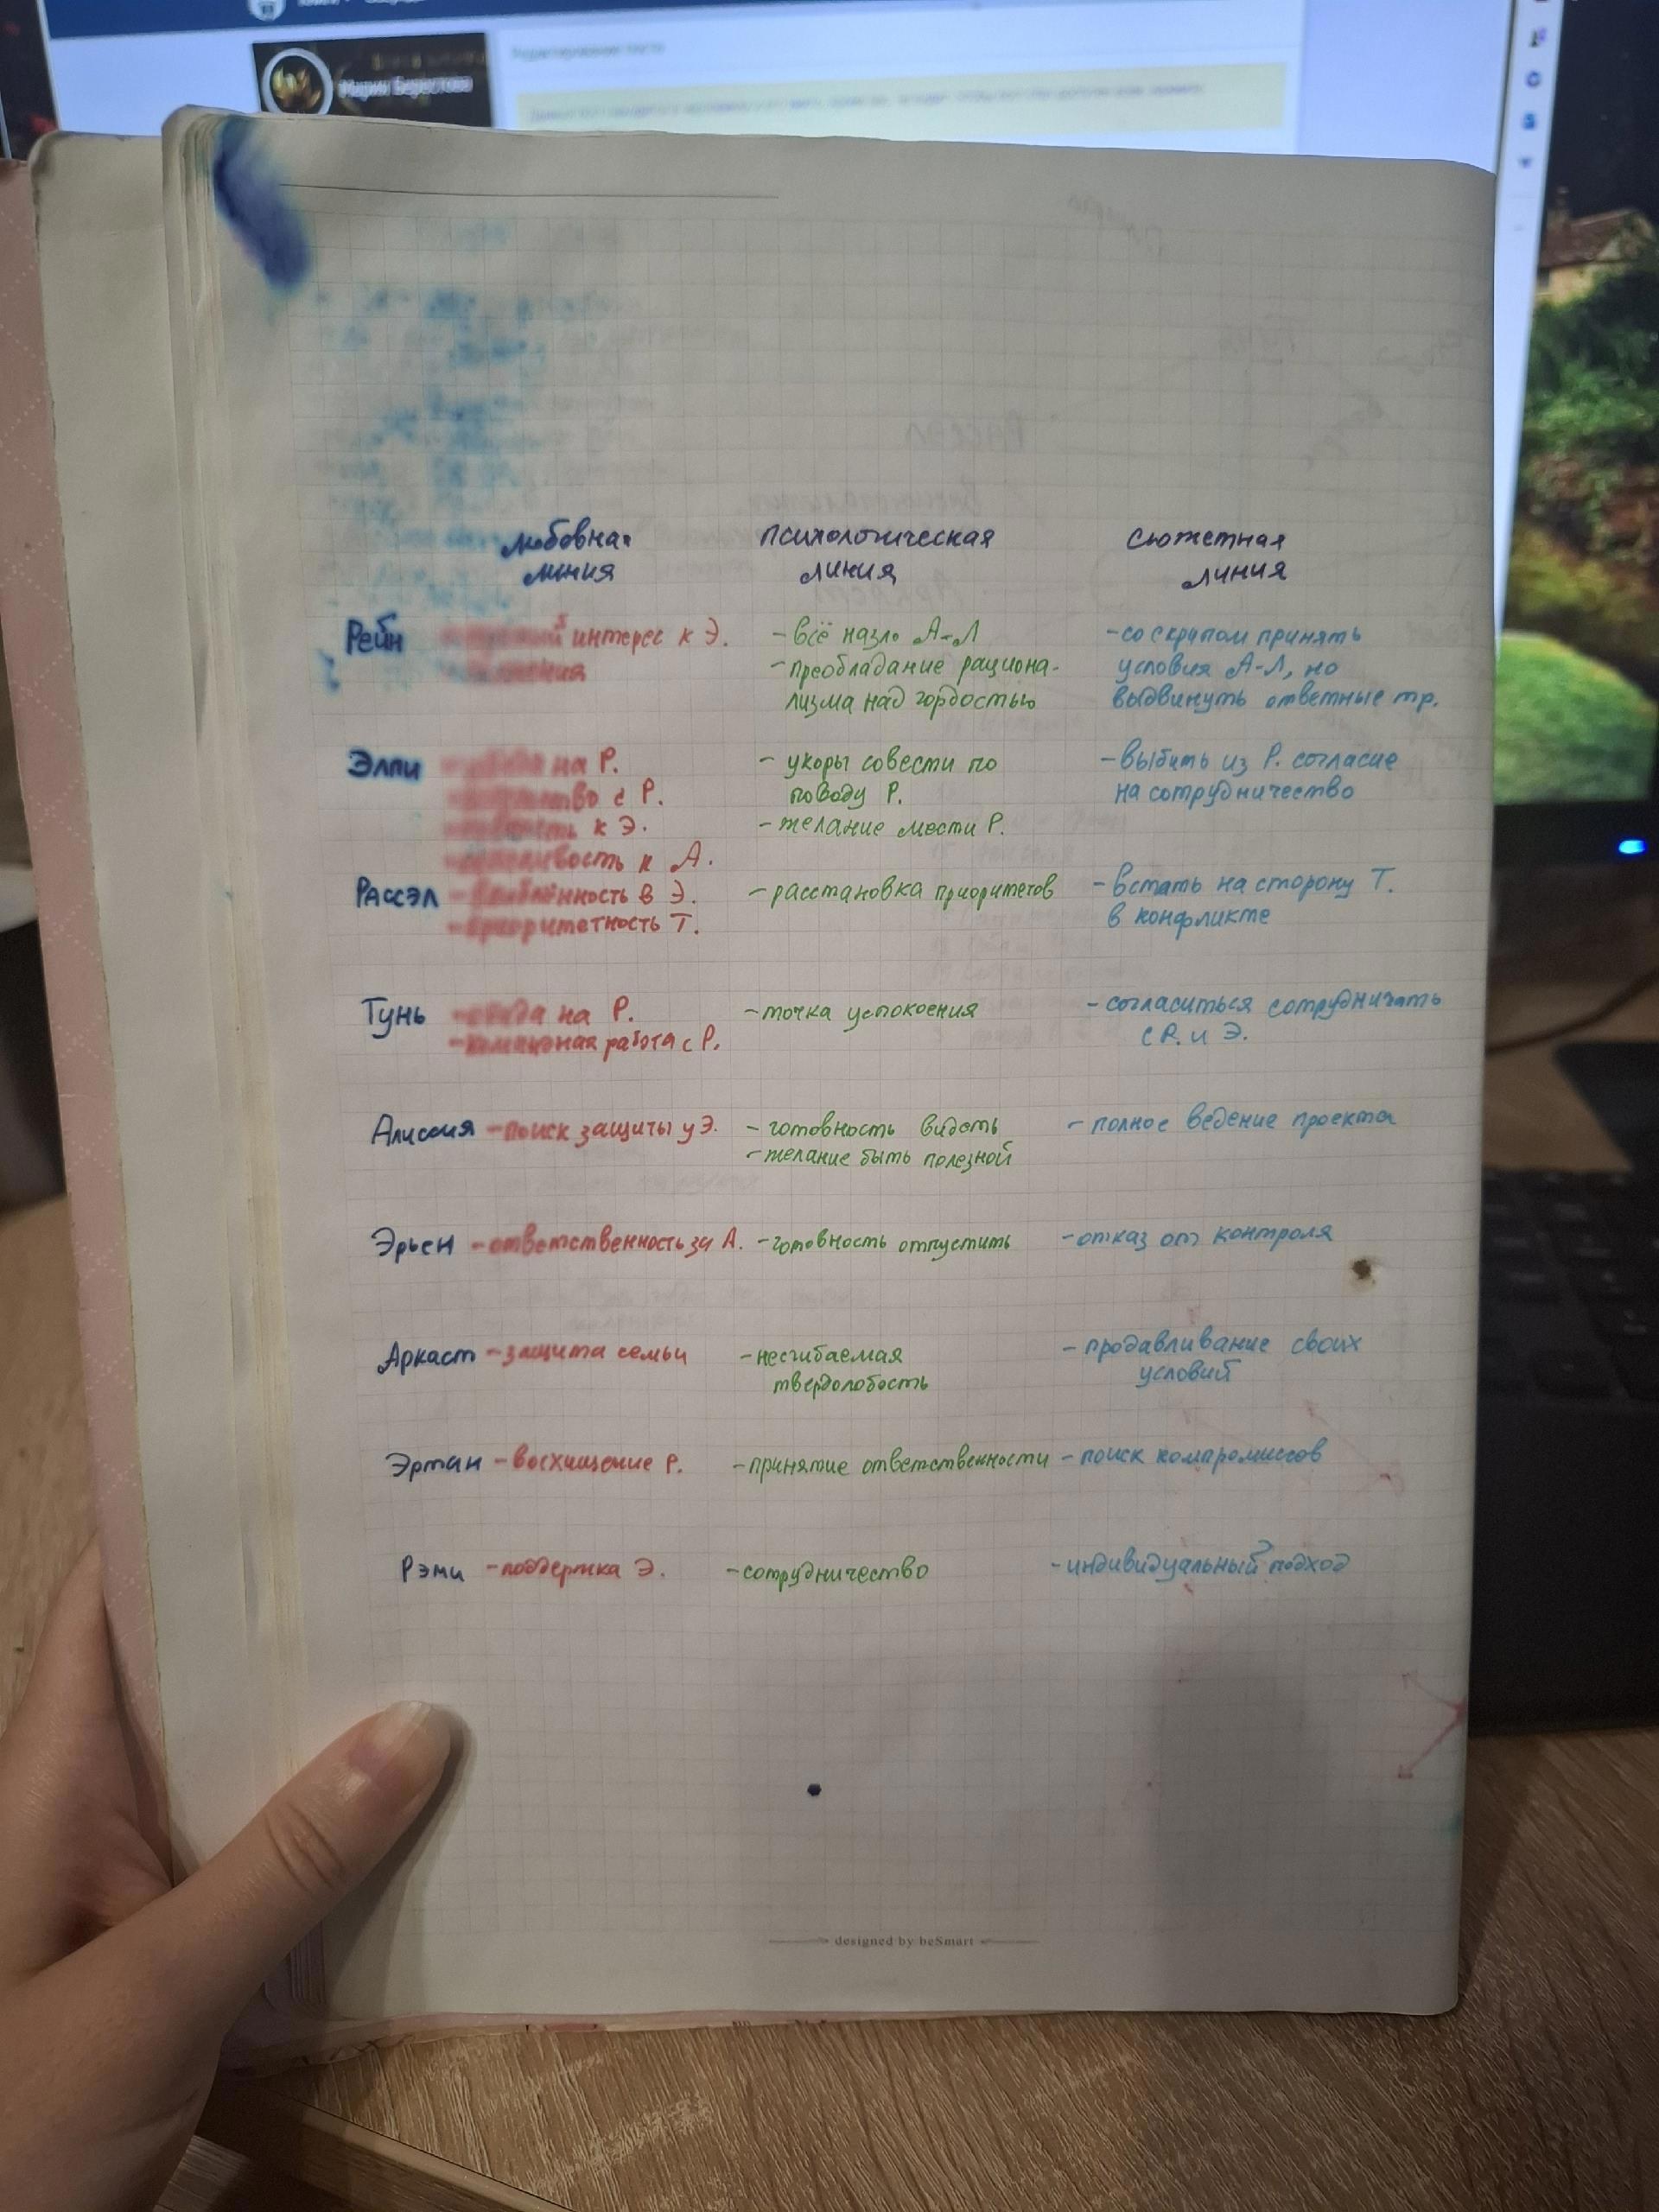 Мария Берестова
Редактирование поста
любовная психологическая сюжетная
линия линия линия
Рейн интерес к Э. -всё назло А-Л -со скрипом принять
-преобладание рациона- условия А-Л, но
лизма над гордостью выдвинуть ответные тр.
Элпи на Р. - укоры совести по -выбить из Р. согласие
с Р. поводу Р. на сотрудничество
к Э. -желание мести Р.
к А.
Рассэл -влюблённость в Э. -расстановка приоритетов -встать на сторону Т.
-приоритетность Т. в конфликте
Тунь на Р. -точка успокоения -согласиться сотрудничать
-командная работа с Р. с Р. и Э.
Алиссия -поиск защиты у Э. -готовность видеть - полное ведение проекта
-желание быть полезной
Эрьен -ответственность за А. -готовность отпустить -отказ от контроля
Аркаст -защита семьи -несгибаемая -продавливание своих
твердолобость условий
Эртан -восхищение Р. -принятие ответственности - поиск компромиссов
Рэми -поддержка Э. -сотрудничество -индивидуальный подход
designed by beSmart